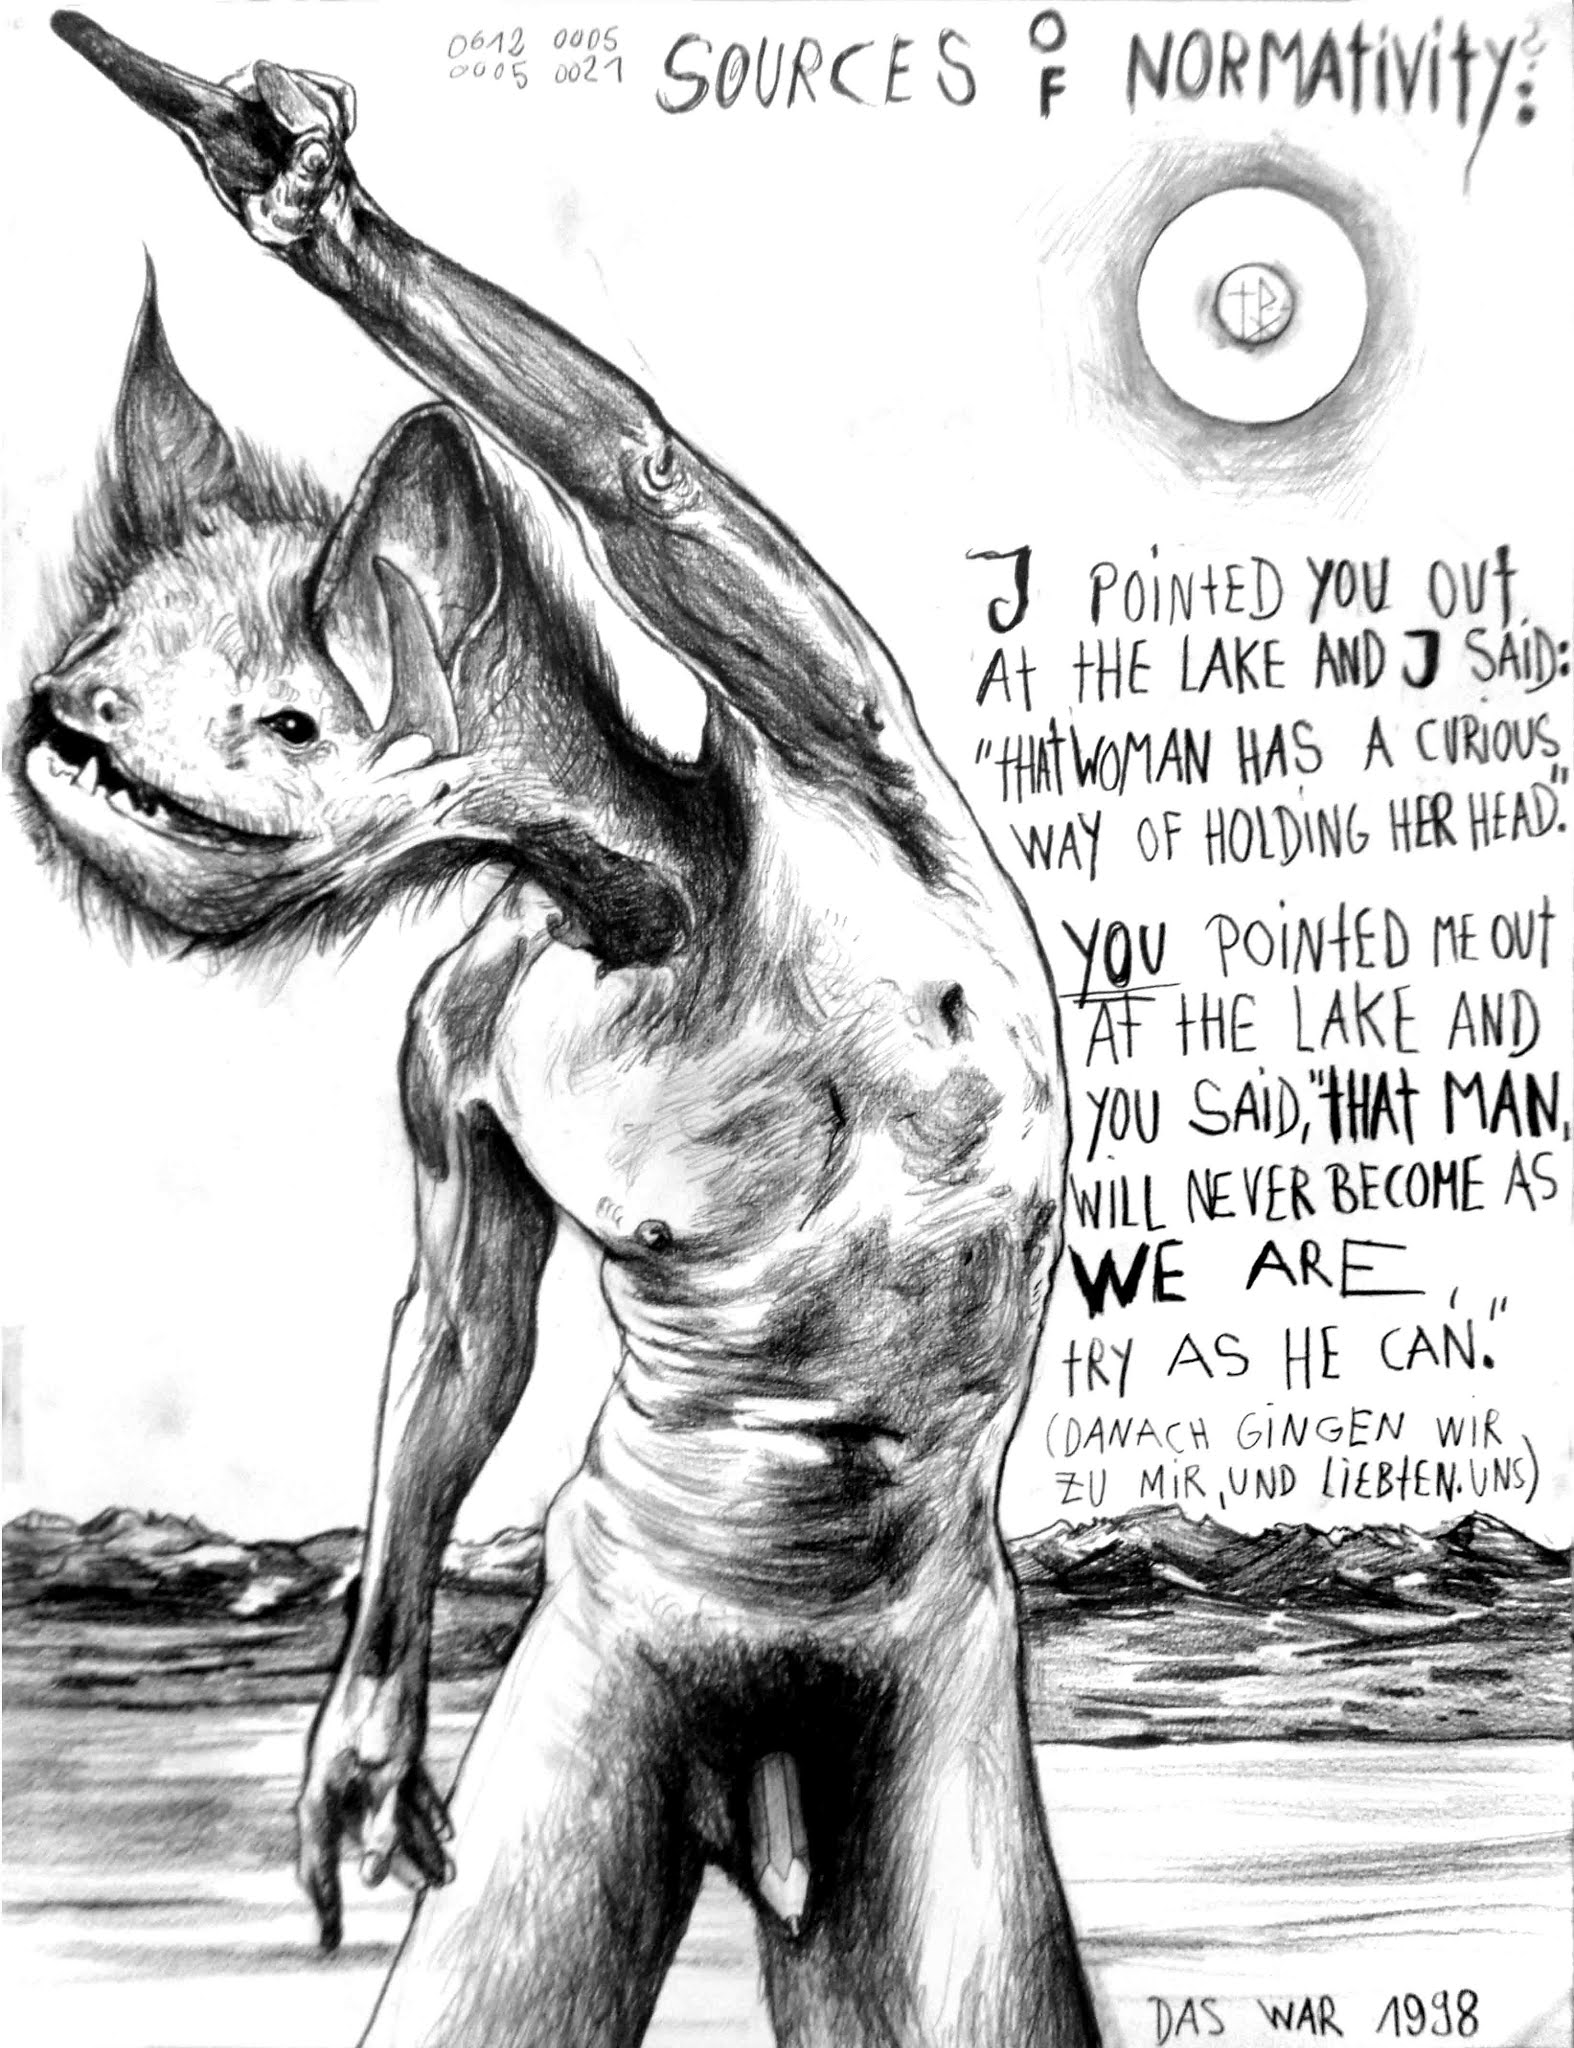 0612 0005
0005 0021
SOURCES OF NORMATIVITY:
I POINTED YOU OUT
AT THE LAKE AND I SAID:
"THAT WOMAN HAS A CURIOUS
WAY OF HOLDING HER HEAD."
YOU POINTED ME OUT
AT THE LAKE AND
YOU SAID, "THAT MAN,
WILL NEVER BECOME AS
WE ARE,
TRY AS HE CAN."
(DANACH GINGEN WIR
ZU MIR, UND LIEBTEN UNS)
DAS WAR 1998